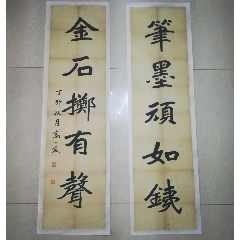 筆墨頑如鐵
金石擲有聲
丁卯秋月